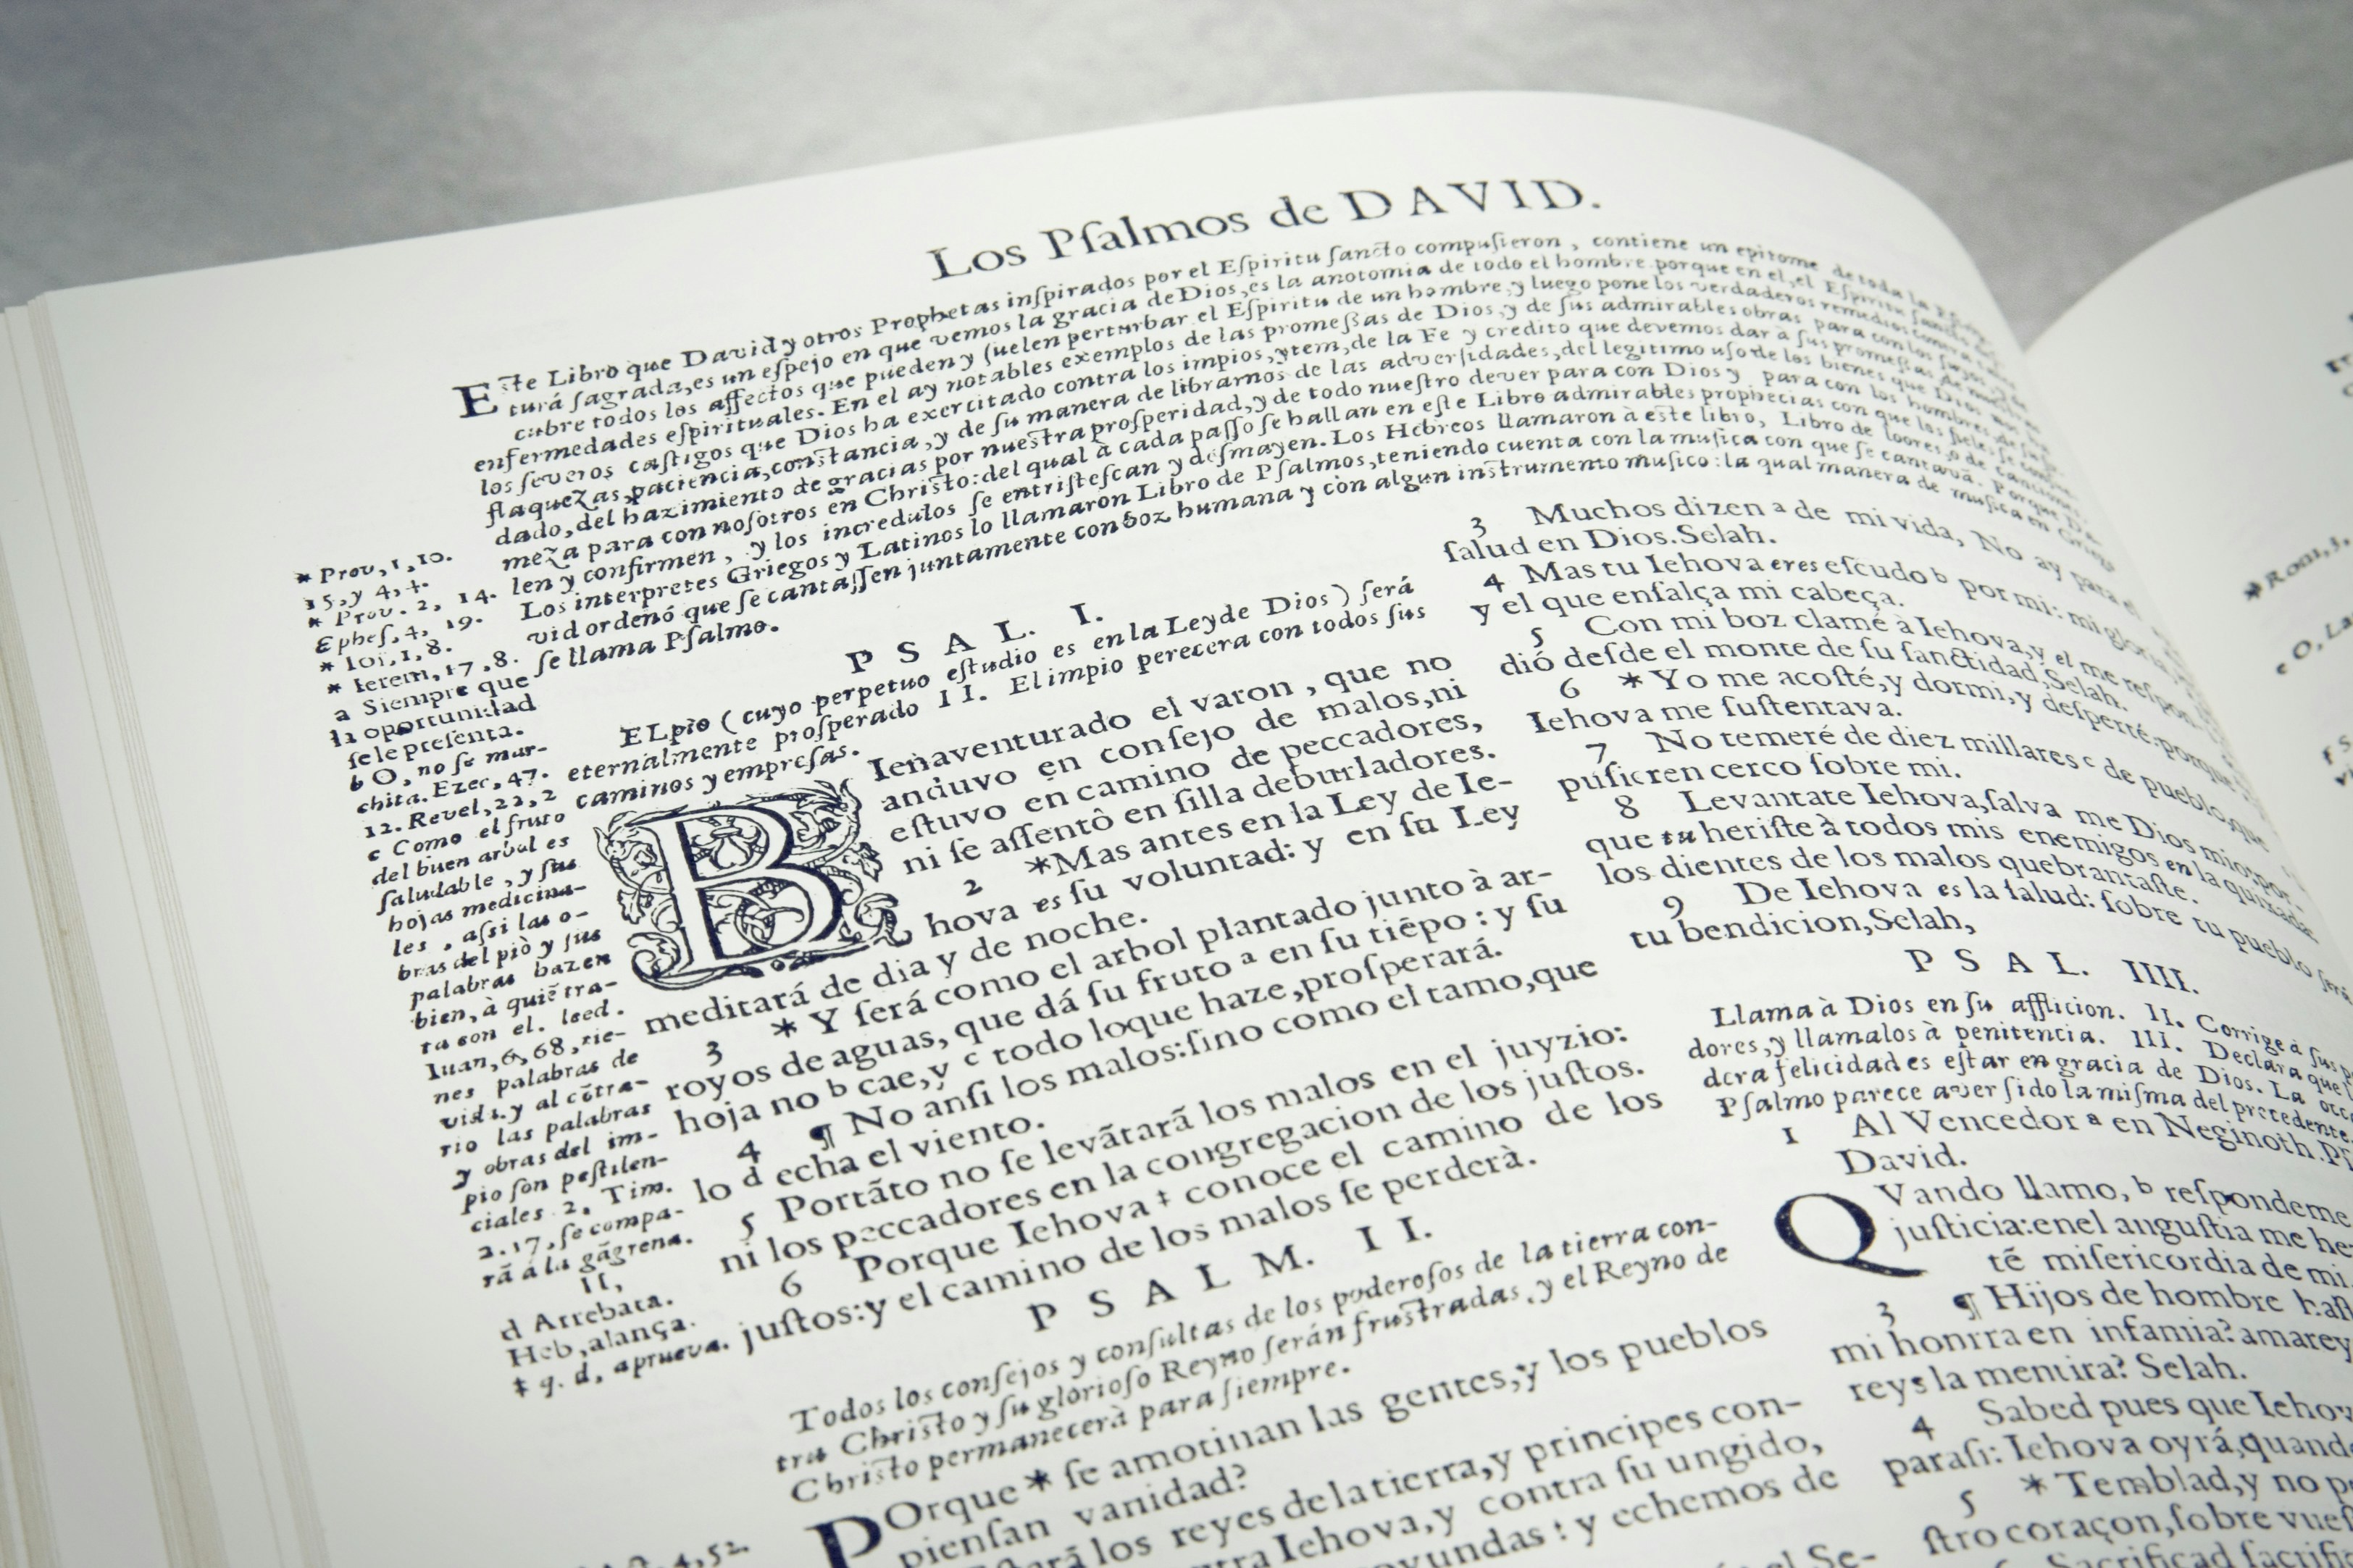 Los Pſalmos de DAVID.
ESte Libro que David y otros Prophetas inſpirados por el Eſpiritu ſancto compuſieron, contiene un epitome de toda la
turá ſagrada, es un eſpejo en que vemos la gracia de Dios, es la anotomia de todo el hombre porque en el, el Eſpiritu
cubre todos los affectos que pueden y ſuelen perturbar el Eſpiritu de un hombre, y luego pone los verdaderos remedios contra
enfermedades eſpirituales. En el ay notables exemplos de las promeſſas de Dios, y de ſus admirables obras para con los
los ſeveros caſtigos que Dios ha exercitado contra los impios, ytem, de la Fe y credito que devemos dar à ſus promeſſas de
flaquezas, paciencia, conſtancia, y de ſu manera de librarnos de las adverſidades, del legitimo uſo de los bienes que Dios nos
dado, del hazimiento de gracias por nueſtra proſperidad, y de todo nueſtro dever para con Dios y para con los hombres
meza para con noſotros en Chriſto: del qual à cada paſſo ſe hallan en eſte Libro admirables prophecias con que los fieles ſe
len y confirmen, y los incredulos ſe entriſteſcan y deſmayen. Los Hebreos llamaron à eſte libro, Libro de loores, o de
Los interpretes Griegos y Latinos lo llamaron Libro de Pſalmos, teniendo cuenta con la muſica con que ſe cantavã. Porque Da-
vid ordenó que ſe cantaſſen juntamente con boz humana y con algun inſtrumento muſico: la qual manera de muſica en Griego
ſe llama Pſalmo.
* Prov, 1, 10.
15, y 4, 4.
* Prov. 2, 14.
Epheſ, 4, 19.
* Ioſ, 1, 8.
* Ierem, 17, 8.
a Siempre que
la oportunidad
ſe le preſenta.
b O, no ſe mar-
chita. Ezec, 47.
12. Revel, 22, 2
c Como el fruto
del buen arbol es
ſaludable, y ſus
hojas medicina-
les, aſſi las o-
bras del piò y ſus
palabras hazen
bien, à quiẽ tra-
ta con el. leed.
Iuan, 6, 68, tie-
nes palabras de
vida. y al cõtra-
rio las palabras
y obras del im-
pio ſon peſtilen-
ciales 2. Tim.
2. 17, ſe compa-
rã à la gãgrena.
II,
d Arrebata.
Heb, alança.
‡ q. d, aprueva.
P S A L. I.
EL pio (cuyo perpetuo eſtudio es en la Ley de Dios) ſerá
eternalmente proſperado II. El impio perecera con todos ſus
caminos y empreſas.
BIenaventurado el varon, que no
anduvo en conſejo de malos, ni
eſtuvo en camino de peccadores,
ni ſe aſſentò en ſilla de burladores.
2 *Mas antes en la Ley de Ie-
hova es ſu voluntad: y en ſu Ley
meditará de dia y de noche.
3 * Y ſerá como el arbol plantado junto à ar-
royos de aguas, que dá ſu fruto a en ſu tiẽpo: y ſu
hoja no b cae, y c todo loque haze, proſperará.
4 ¶ No anſi los malos: ſino como el tamo, que
lo d echa el viento.
5 Portãto no ſe levãtarã los malos en el juyzio:
ni los peccadores en la congregacion de los juſtos.
6 Porque Iehova ‡ conoce el camino de los
juſtos: y el camino de los malos ſe perderà.
P S A L M. I I.
Todos los conſejos y conſultas de los poderoſos de la tierra con-
tra Chriſto y ſu glorioſo Reyno ſerán fruſtradas, y el Reyno de
Chriſto permanecerà para ſiempre.
POrque * ſe amotinan las gentes, y los pueblos
pienſan vanidad?
los reyes de la tierra, y principes con-
Iehova, y contra ſu ungido,
y echemos de
3 Muchos dizen a de mi vida, No ay para el
ſalud en Dios. Selah.
4 Mas tu Iehova eres eſcudo b por mi: mi gloria,
y el que enſalça mi cabeça.
5 Con mi boz clamé à Iehova, y el me reſpon-
dió deſde el monte de ſu ſanctidad, Selah.
6 * Yo me acoſté, y dormi, y deſperté: porque
Iehova me ſuſtentava.
7 No temeré de diez millares c de pueblo, que
puſieren cerco ſobre mi.
8 Levantate Iehova, ſalva me Dios mio: por-
que tu heriſte à todos mis enemigos en la quixada:
los dientes de los malos quebrantaſte.
9 De Iehova es la ſalud: ſobre tu pueblo ſerá
tu bendicion, Selah,
P S A L. IIII.
Llama à Dios en ſu afflicion. II. Corrige à ſus
dores, y llamalos à penitencia. III. Declara que
dera felicidad es eſtar en gracia de Dios. La
Pſalmo parece aver ſido la miſma del precedente.
1 Al Vencedor a en Neginoth.
David.
QVando llamo, b reſpondeme
juſticia: en el anguſtia me
tẽ miſericordia de mi
3 ¶ Hijos de hombre
mi honrra en infamia? amarey
reys la mentira? Selah.
4 Sabed pues que
para ſi: Iehova oyrá, quando
5 * Temblad, y no
ſtro coraçon, ſobre